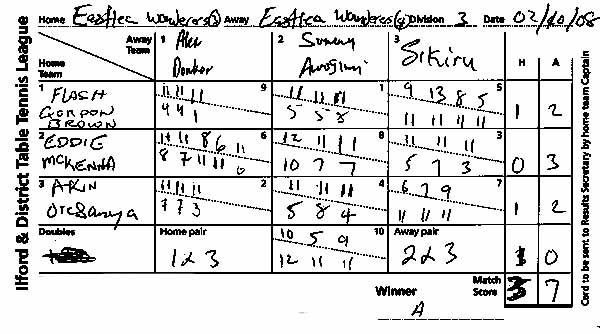 Ilford & District Table Tennis League
Home Eastlea Wanderers(3) Away Eastlea Wanderers(4) Division 3 Date 02/10/08
Away Team 1 Alex Donkor 2 Sunny 3 Sikiru H A
Home Team
1 FLASH GORDON BROWN 9 11 11 11 1 11 11 11 5 9 13 8 5 1 2
9 9 1 5 5 8 11 11 11 11
2 EDDIE MCKENNA 6 11 11 8 6 11 8 12 11 11 3 11 11 11 0 3
8 7 11 11 10 7 7 5 7 3
3 AKIN 2 11 11 11 4 11 11 11 7 6 7 9 1 2
7 7 3 5 8 4 11 11 11
Doubles Home pair 1&3 10 10 5 9 Away pair 2&3 1 0
12 11 11
Winner A Match Score 3 7
Card to be sent to Results Secretary by home team Captain